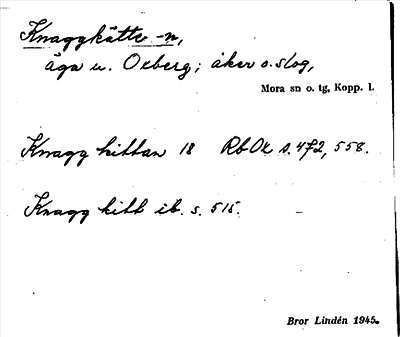 Knaggkätte -n,
äga u. Oxberg; åker o. slog,
Mora sn o. tg, Kopp. l.
Knagg kittan 18 Rb Ox s. 472, 558.
Knagg kitt ib. s. 515.
Bror Lindén 1945.